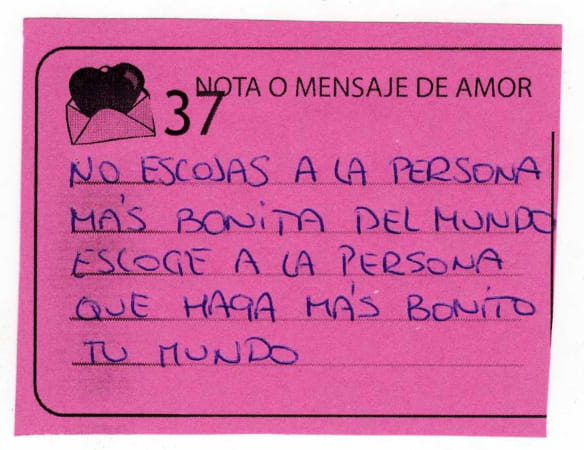 NOTA O MENSAJE DE AMOR
37
NO ESCOJAS A LA PERSONA
MÁS BONITA DEL MUNDO
ESCOGE A LA PERSONA
QUE HAGA MÁS BONITO
TU MUNDO